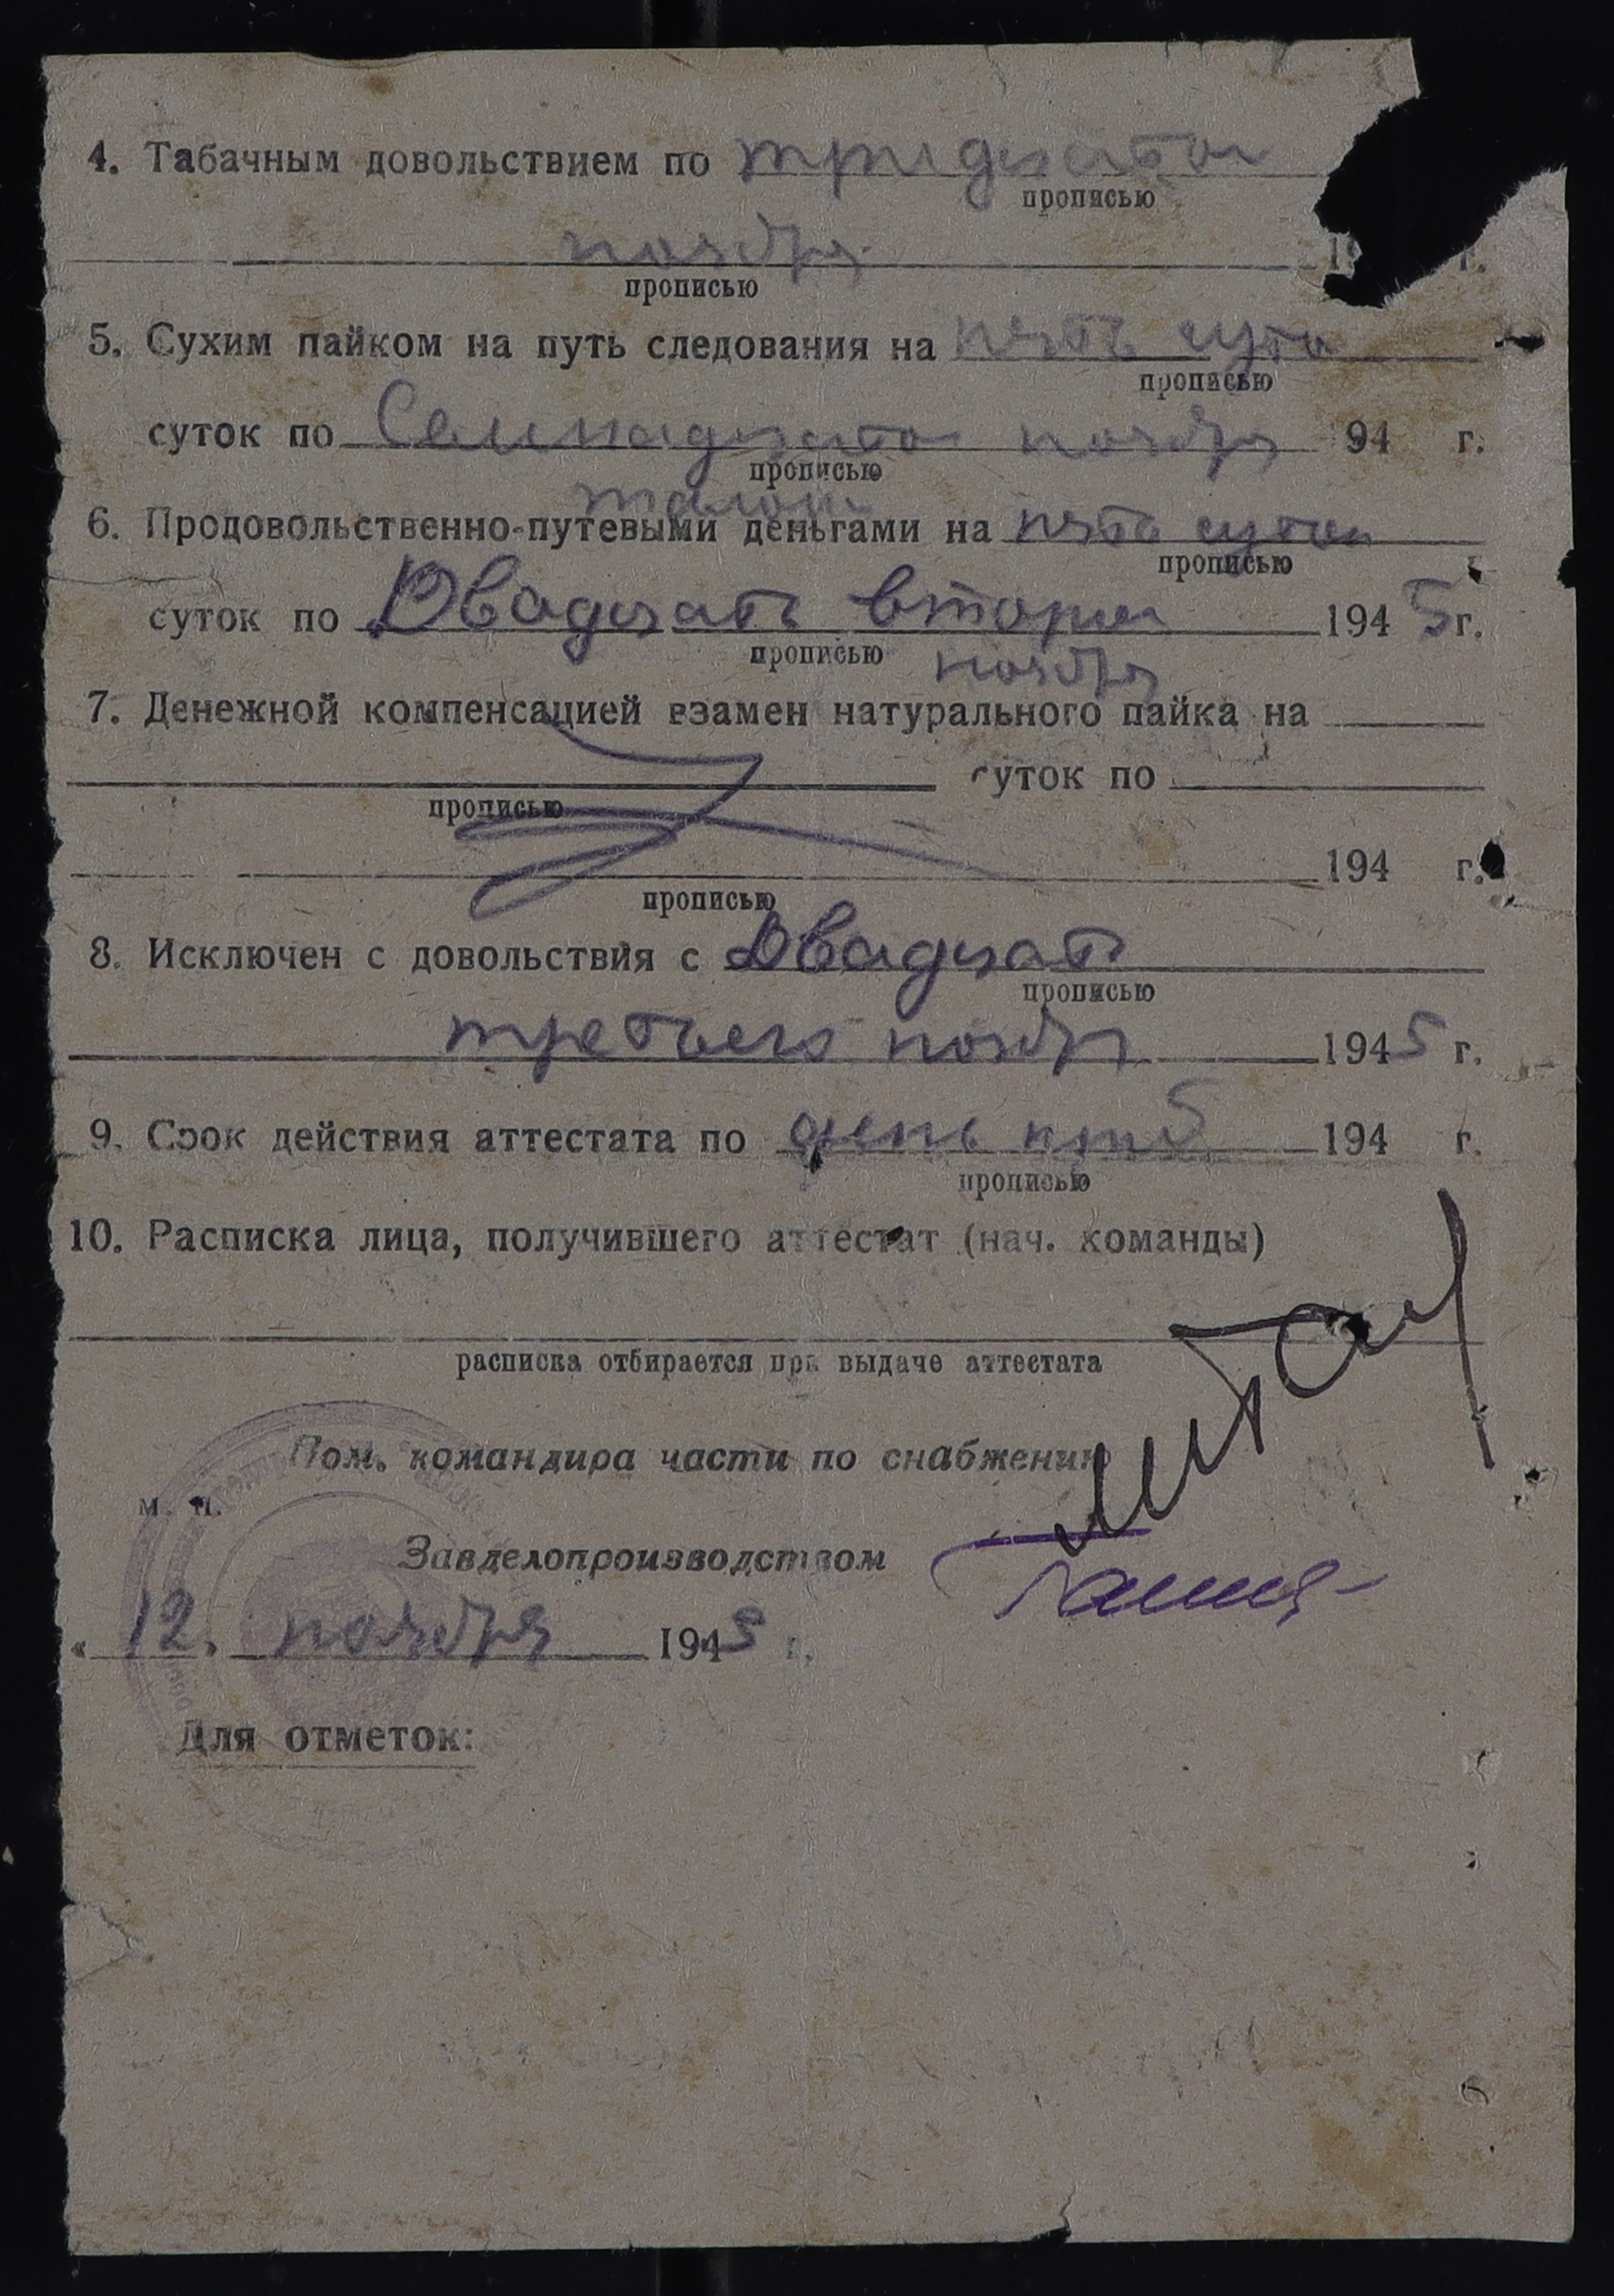 4. Табачным довольствием по тридцатое
прописью
ноября 19 г.
прописью
5. Сухим пайком на путь следования на пять суток
прописью
суток по Семнадцатое ноября 94 г.
прописью
талон
6. Продовольственно-путевыми деньгами на пять суток
прописью
суток по Двадцать второе 1945 г.
прописью ноября
7. Денежной компенсацией взамен натурального пайка на
суток по
прописью
194 г.
прописью
8. Исключен с довольствия с Двадцать
прописью
третьего ноября 1945 г.
9. Срок действия аттестата по день 194 г.
прописью
10. Расписка лица, получившего аттестат (нач. команды)
расписка отбирается при выдаче аттестата
Пом. командира части по снабжению
м. п.
Завделопроизводством
„ 12 . ноября 1945 г.
Для отметок: